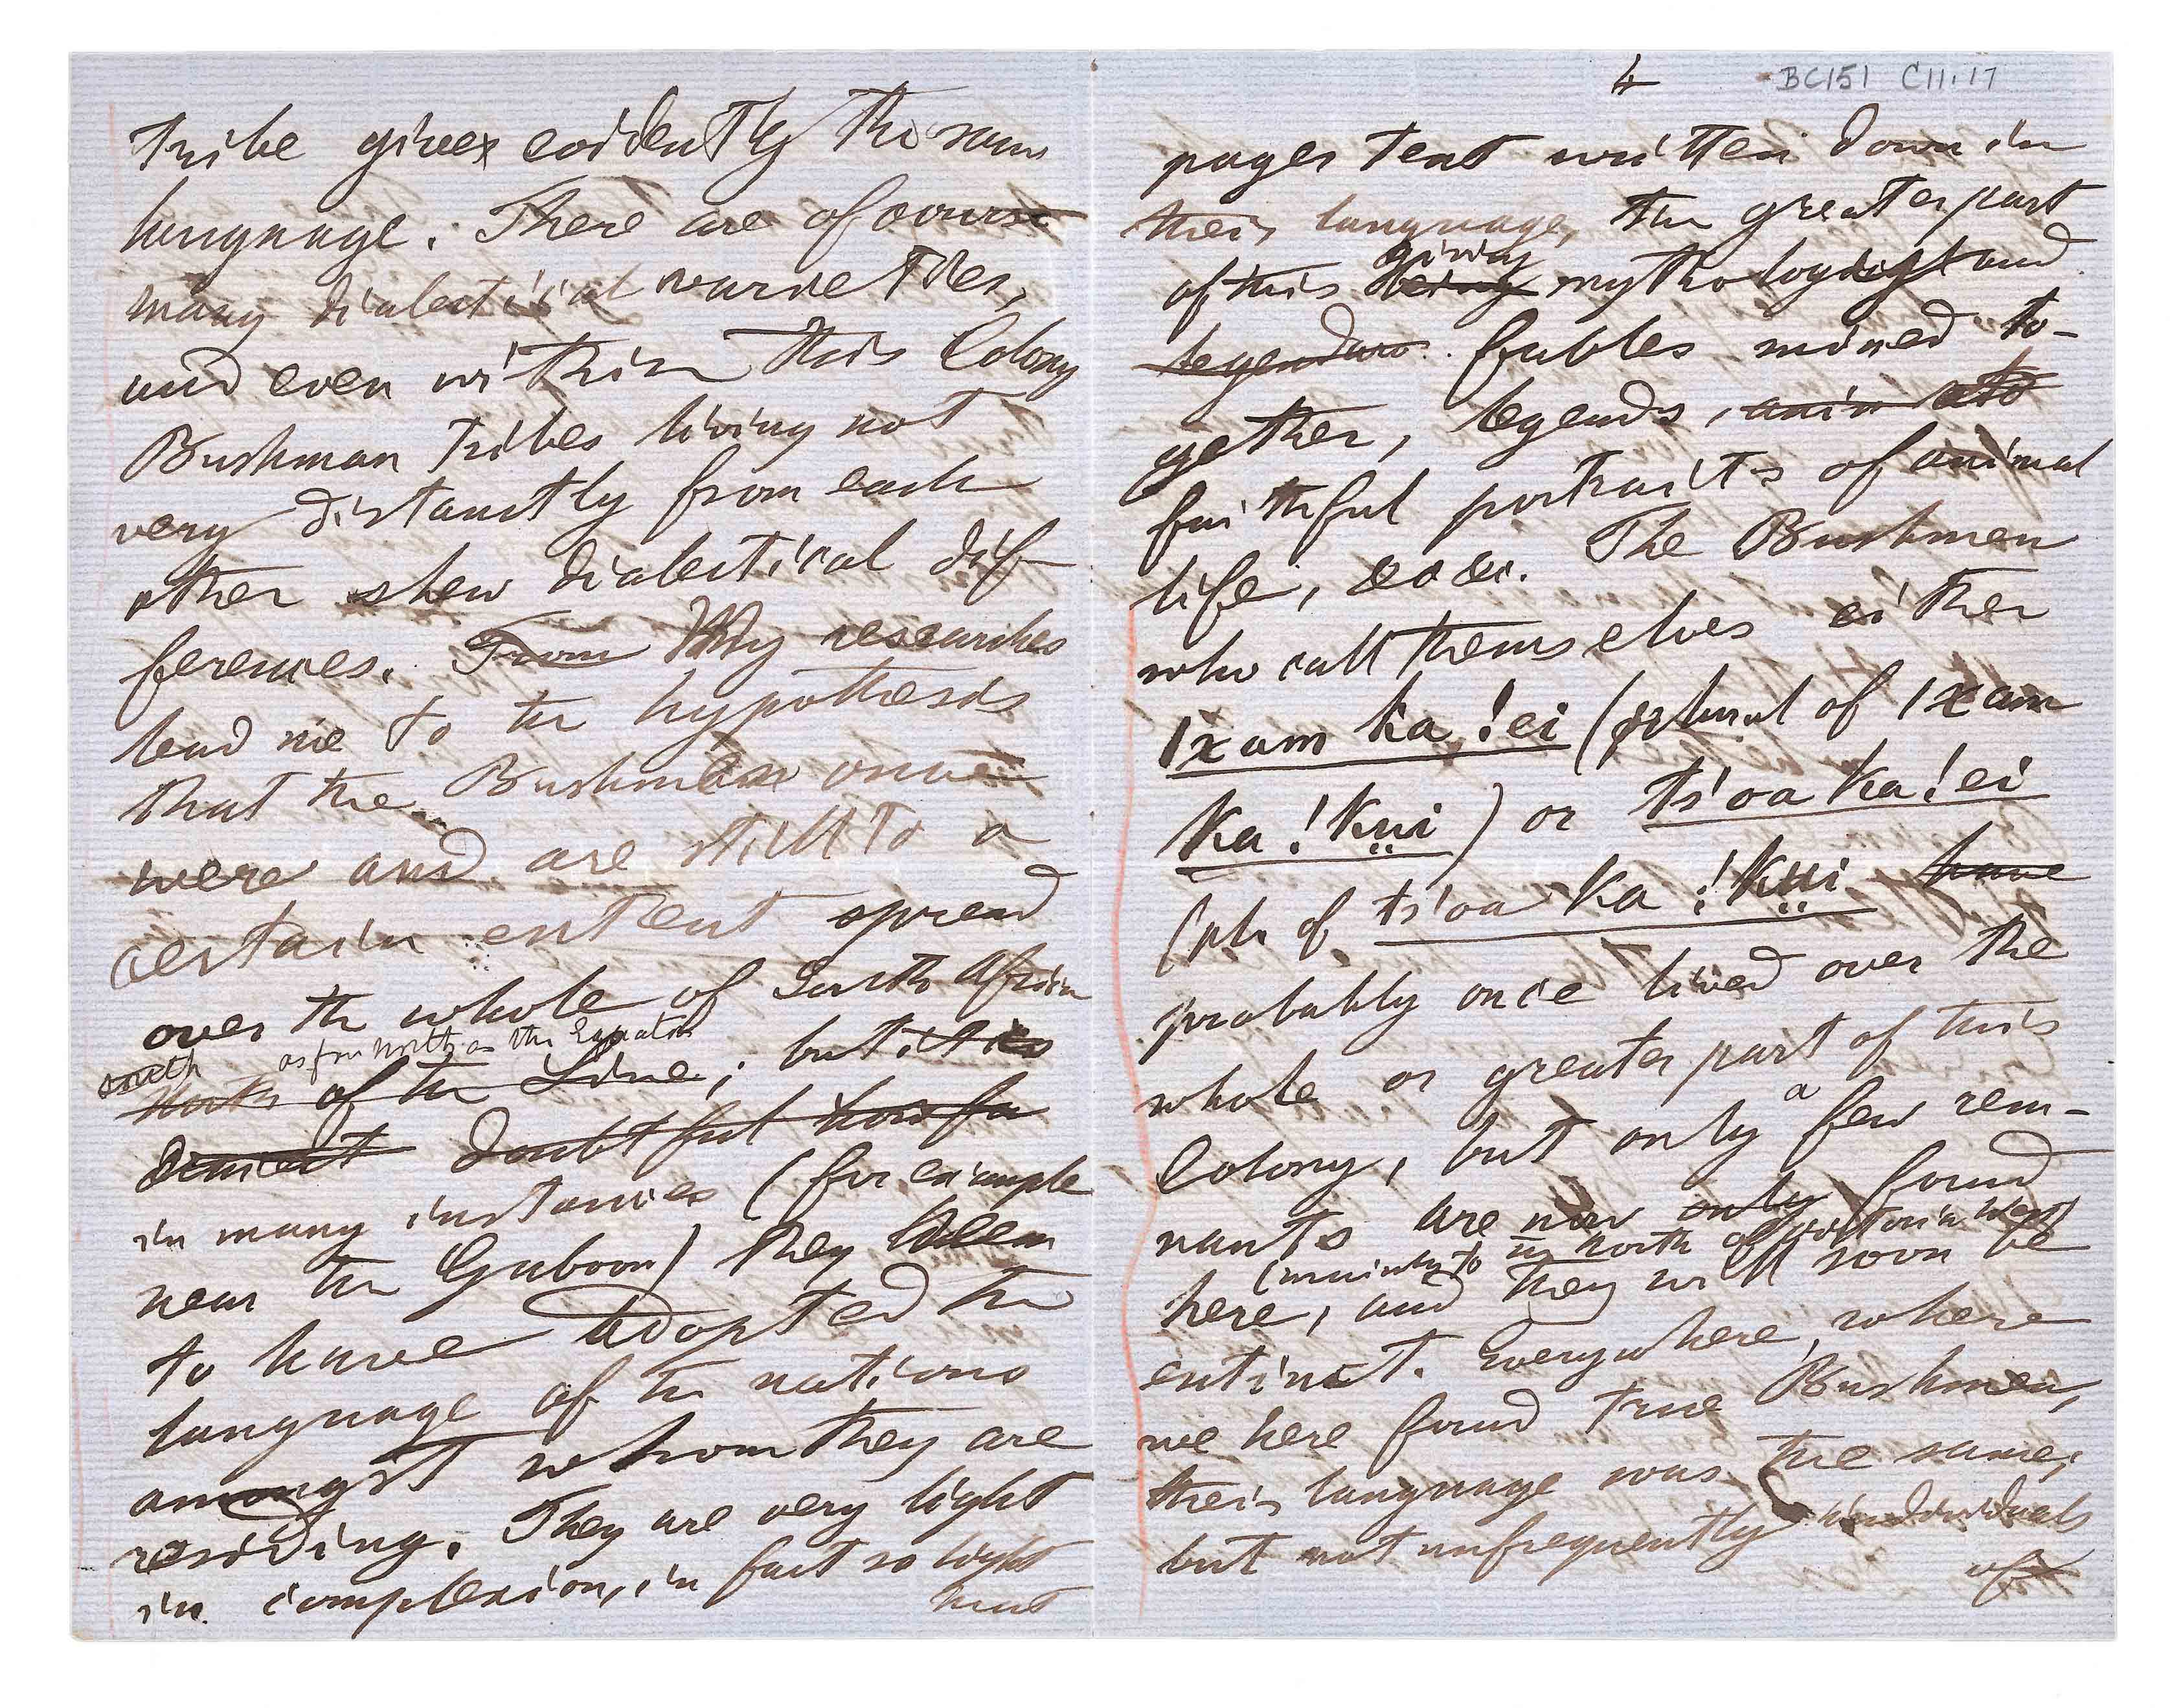 tribe gives evidently the same
language. There are of course
many dialectical varieties,
and even within this Colony
Bushman tribes living not
very distantly from each
other shew dialectical dif-
ferences. From My researches
lead me to the hypothesis
that the Bushmen once
were and are still to a
certain extent spread
over the whole of South Africa
south as far north as the Equator
North of the Line; but it is
doubtful how far
in many instances (for example
near the Gaboon) they seem
to have adopted the
language of the nations
amongst whom they are
residing. They are very light
in complexion, in fact so light
that
4
BC151 C11.17
pages text written down in
their language, the greater part
giving
of this being mythology and
legendary. fables mixed to-
gether, legends,
faithful portraits of animal
life, &c &c. The Bushmen
who call themselves either
|xam ka !ei (plural of |xam
ka !kṳi) or ts'oa ka !ei
(pl. of ts'oa ka !kṳi have
probably once lived over the
whole or greater part of this
a
Colony, but only few rem-
nants are now only found
(mainly to the north of Victoria West)
here, and they will soon be
extinct. Everywhere, where
we here found true Bushmen,
their language was the same;
but not unfrequently individuals
of